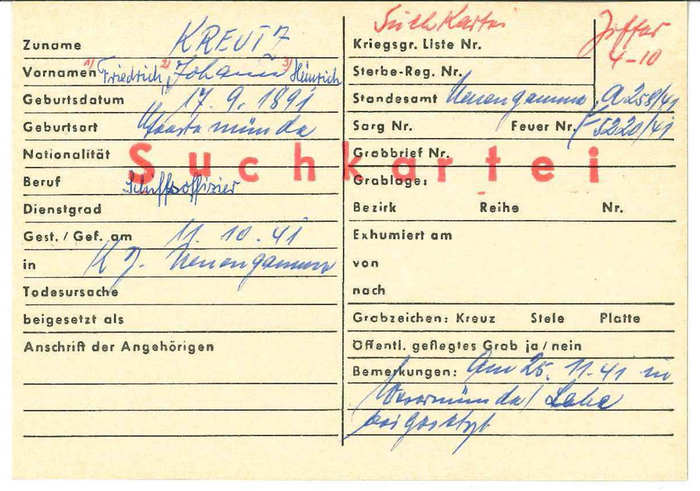 Zuname KREUTZ
Vornamen 1) Friedrich, 2) Johann 3) Heinrich
Geburtsdatum 17. 9. 1891
Geburtsort
Nationalität
Beruf Schiffsoffizier
Dienstgrad
Gest. / Gef. am 11. 10. 41
in K Z. Neuengamme
Todesursache
beigesetzt als
Anschrift der Angehörigen
Suchkartei
Suchkartei
Ziffer
4-10
Kriegsgr. Liste Nr.
Sterbe-Reg. Nr.
Standesamt Neuengamme, A 258/41
Sarg Nr. Feuer Nr. F 5220/41
Grabbrief Nr.
Grablage:
Bezirk Reihe Nr.
Exhumiert am
von
nach
Grabzeichen: Kreuz Stele Platte
Öffentl. geflegtes Grab ja / nein
Bemerkungen: Am 25. 11. 41 in
Wesermünde / Lehe
beigesetzt